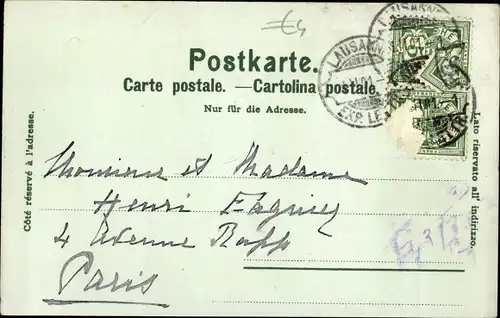 €4
Postkarte.
Carte postale. — Cartolina postale.
Nur für die Adresse.
Côté réservé à l'adresse.
Lato riservato all' indirizzo.
LAUSANNE
EXP. LE
LAUSANNE
Monsieur et Madame
Henri
4 Avenue Rapp
Paris